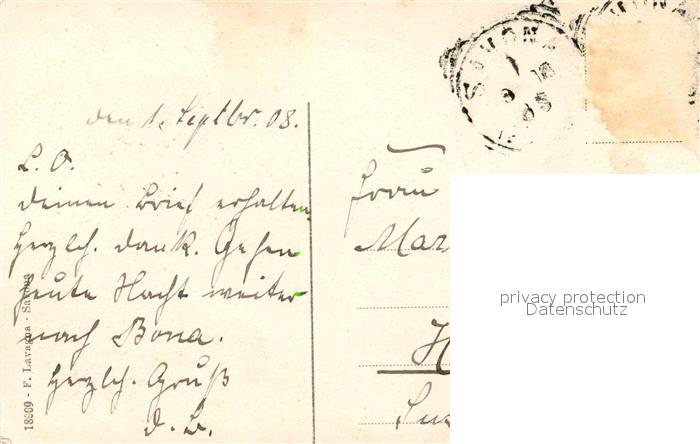 den 1. Septbr. 08.
L. O.
Deinen Brief erhalten,
Herzlch. Dank. Gehen
heute Nacht weiter
nach Bona.
Herzlch. Gruß
D. L.
18009 - F. Lavagna - Savona
SAVONA
Frau
privacy protection
Datenschutz